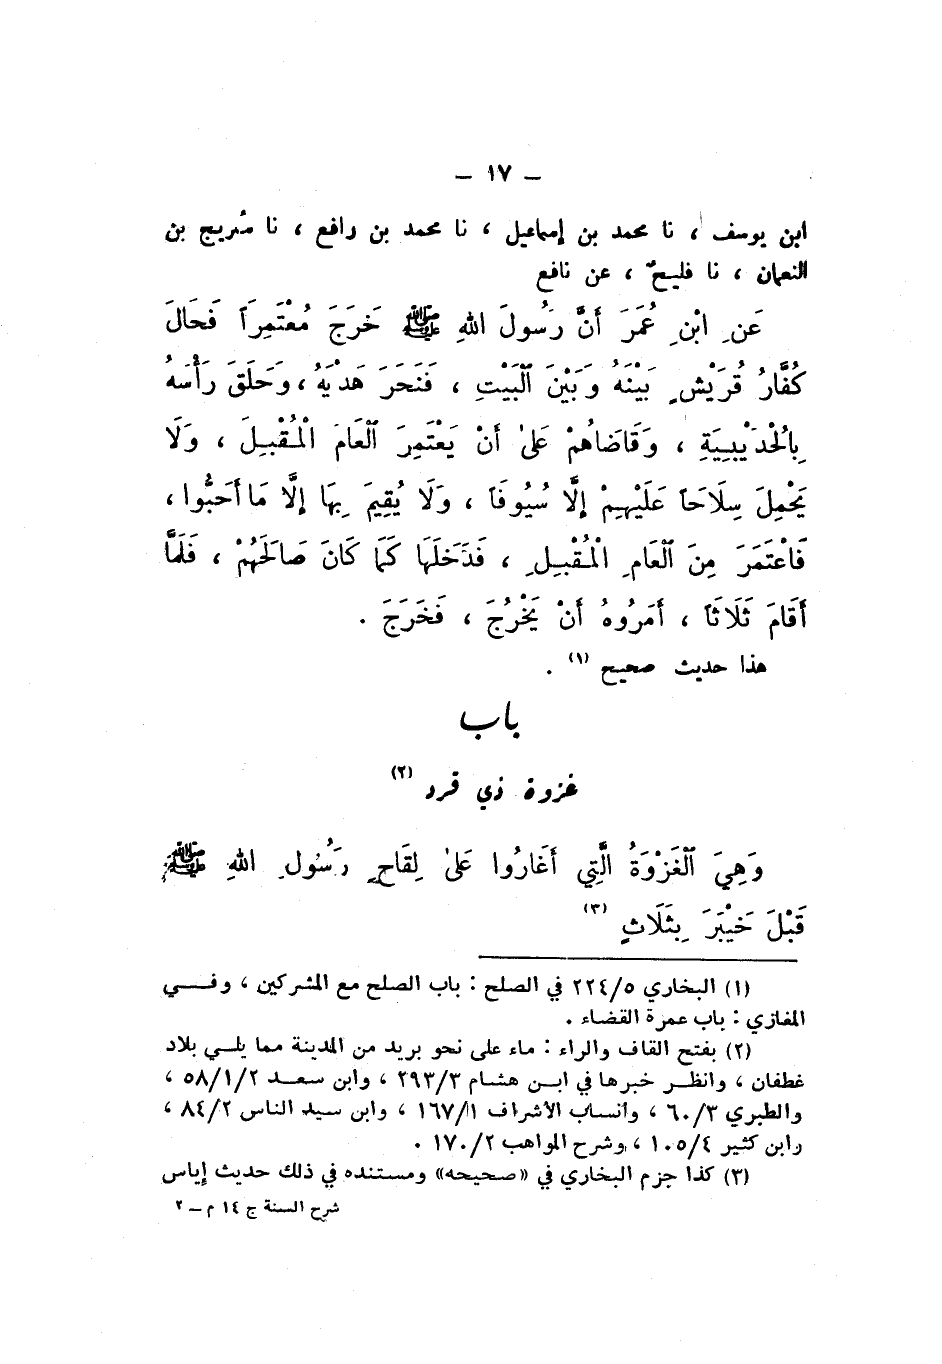 – ١٧ –
ابن يوسف ، نا محمد بن إسماعيل ، نا محمد بن رافع ، نا سُريج بن
النعمان ، نا فليحٌ ، عن نافع
عَنِ ابْنِ عُمَرَ أَنَّ رَسُولَ اللهِ ﷺ خَرَجَ مُعْتَمِراً فَحَالَ
كُفَّارُ قُرَيْشٍ بَيْنَهُ وَبَيْنَ ٱلْبَيْتِ ، فَنَحَرَ هَدْيَهُ ، وَحَلَقَ رَأْسَهُ
بِالْحُدَيْبِيَةِ ، وَقَاضَاهُمْ عَلىٰ أَنْ يَعْتَمِرَ ٱلْعَامَ الْمُقْبِلَ ، وَلَا
يَحْمِلَ سِلَاحَاً عَلَيْهِمْ إِلَّا سُيُوفَاً ، وَلَا يُقِيمَ بِهَا إِلَّا مَا أَحَبُّوا ،
فَاعْتَمَرَ مِنَ ٱلْعَامِ الْمُقْبِلِ ، فَدَخَلَهَا كَمَا كَانَ صَالَحَهُمْ ، فَلَمَّا
أَقَامَ ثَلَاثَاً ، أَمَرُوهُ أَنْ يَخْرُجَ ، فَخَرَجَ .
هذا حديث صحيح (١) .
باب
غزوة ذي قرد (٢)
وَهِيَ ٱلْغَزْوَةُ الَّتِي أَغَارُوا عَلىٰ لِقَاحِ رَسُولِ اللهِ ﷺ
قَبْلَ خَيْبَرَ بِثَلَاثٍ (٣)
(١) البخاري ٢٢٤/٥ في الصلح : باب الصلح مع المشركين ، وفي
المغازي : باب عمرة القضاء .
(٢) بفتح القاف والراء : ماء على نحو بريد من المدينة مما يلي بلاد
غطفان ، وانظر خبرها في ابن هشام ٢٩٣/٣ ، وابن سعد ٥٨/١/٢ ،
والطبري ٦٠/٣ ، وأنساب الأشراف ١٦٧/١ ، وابن سيد الناس ٨٤/٢ ،
وابن كثير ١٠٥/٤ ، وشرح المواهب ١٧٠/٢ .
(٣) كذا جزم البخاري في «صحيحه» ومستنده في ذلك حديث إياس
شرح السنة ج ١٤ م – ٢